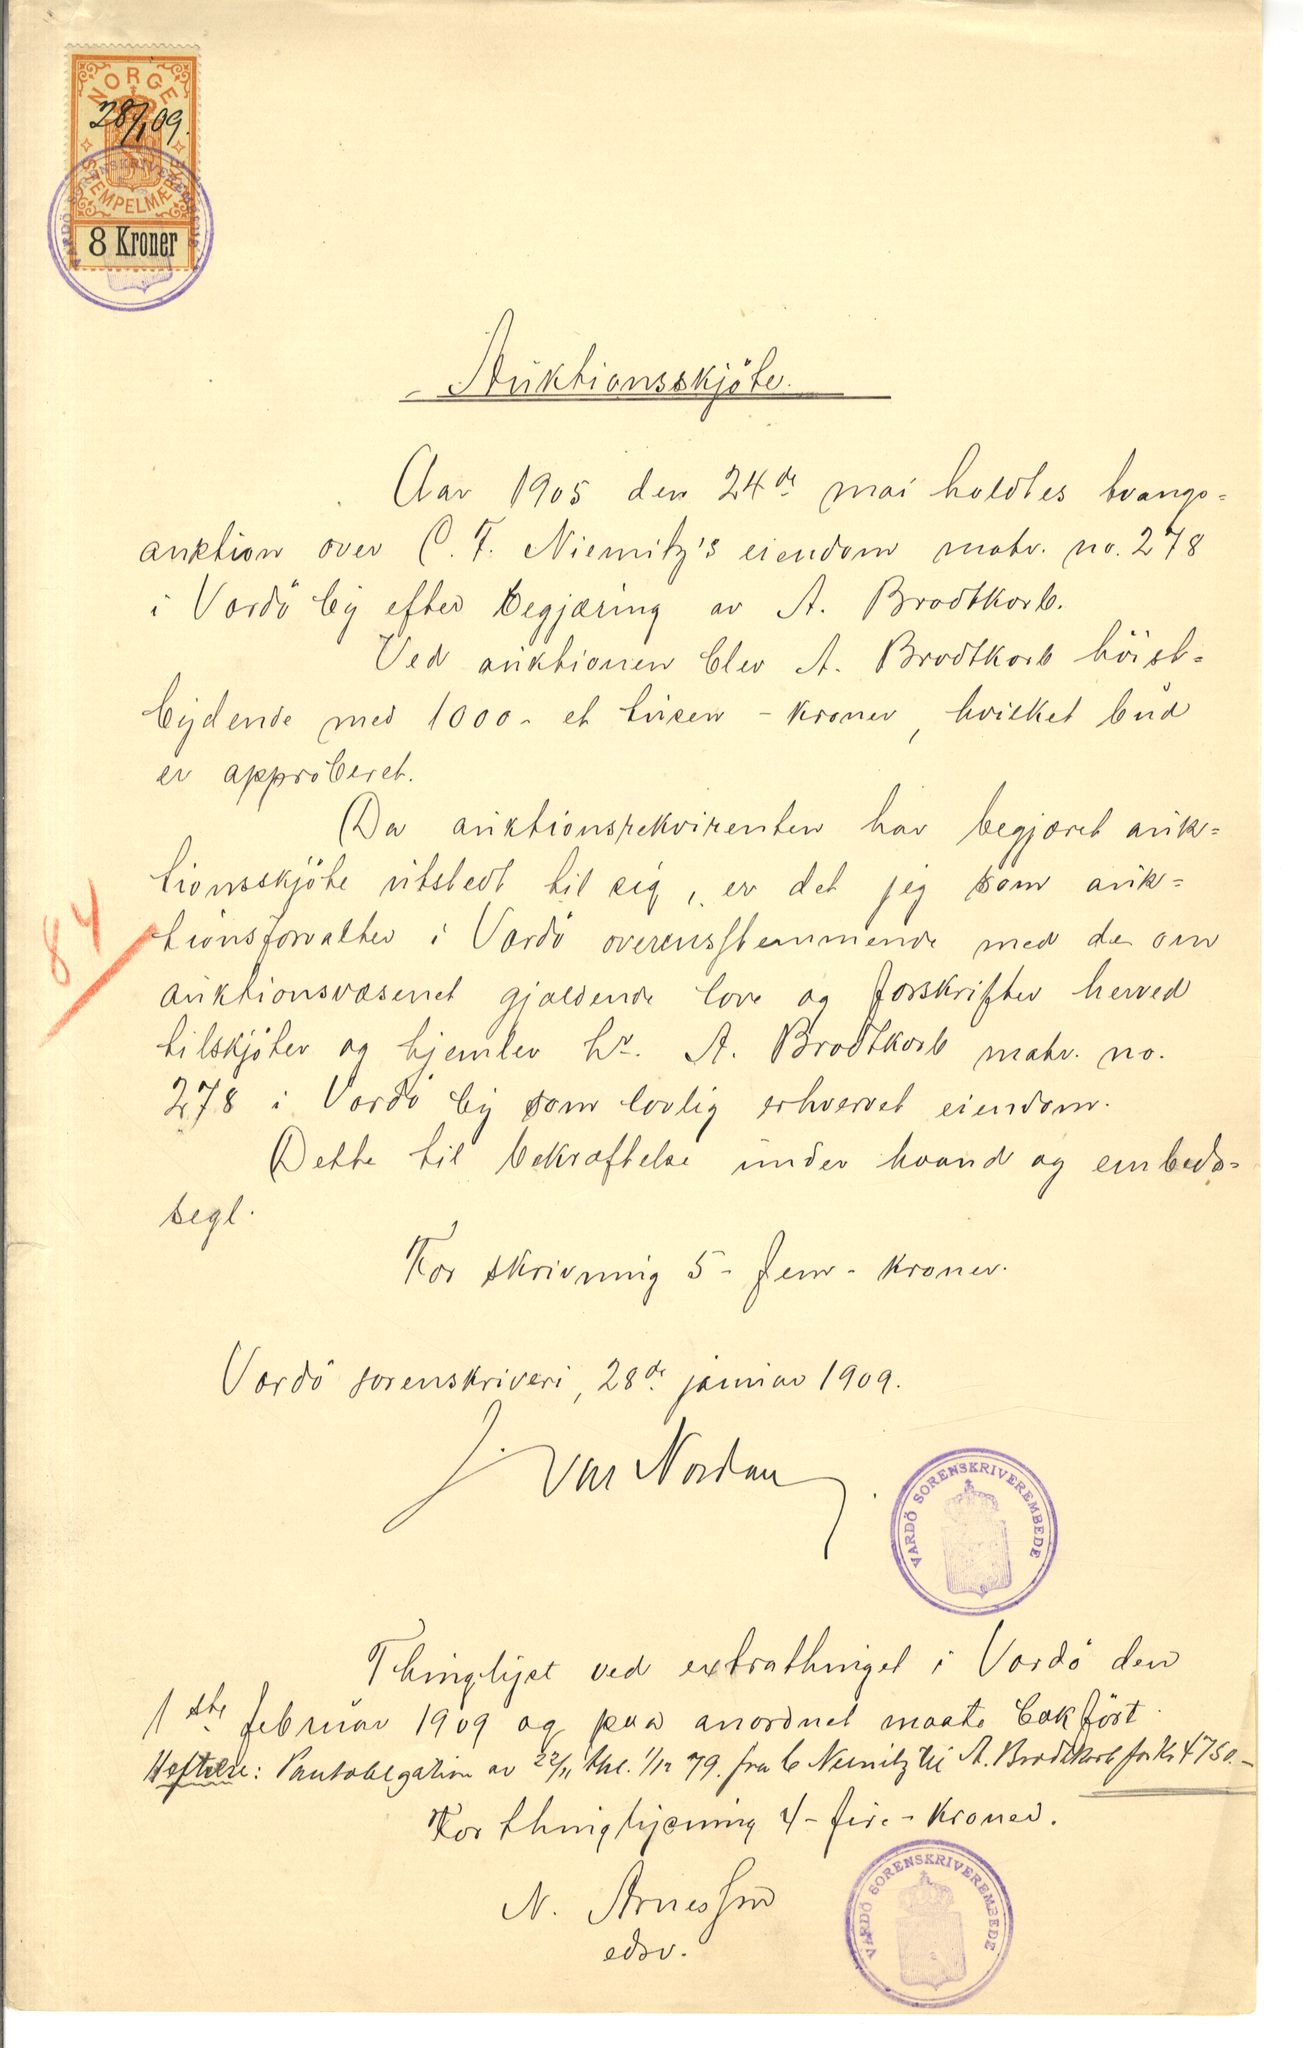 NORGE
28/1 09.
STEMPELMÆRKE
8 Kroner
VARDÖ SORENSKRIVEREMBEDE
Auktionsskjöte.
Aar 1905 den 24de mai holdtes tvangs=
auktion over C. F. Niemitz's eiendom matr. no. 278
i Vardö by efter begjæring av A. Brodtkorb.
Ved auktionen blev A. Brodtkorb höist=
bydende med 1000 - et tusen - kroner, hvilket bud
er approberet.
Da auktionsrekvirenten har begjæret auk=
tionsskjöte utstedt til sig, er det jeg som auk=
tionsforvalter i Vardö overensstemmende med de om
auktionsvæsenet gjældende love og forskrifter herved
tilskjöter og hjemler hr. A. Brodtkorb matr. no.
278 i Vardö by som lovlig erhvervet eiendom.
Dette til bekræftelse under haand og embeds=
segl.
For skrivning 5 - fem - kroner.
84
Vardö sorenskriveri, 28de januar 1909.
J. Nordan
VARDÖ SORENSKRIVEREMBEDE
Thinglyst ved extrathinget i Vardö den
1ste februar 1909 og paa anordnet maate bokfört.
Heftelse: Pantobligation av 22/11 thl. 1/12 79. fra C Niemitz til A. Brodtkorb for Kr 4750.-
For thinglysning 4 - fire - kroner.
N. Arnessen
edsv.
VARDÖ SORENSKRIVEREMBEDE